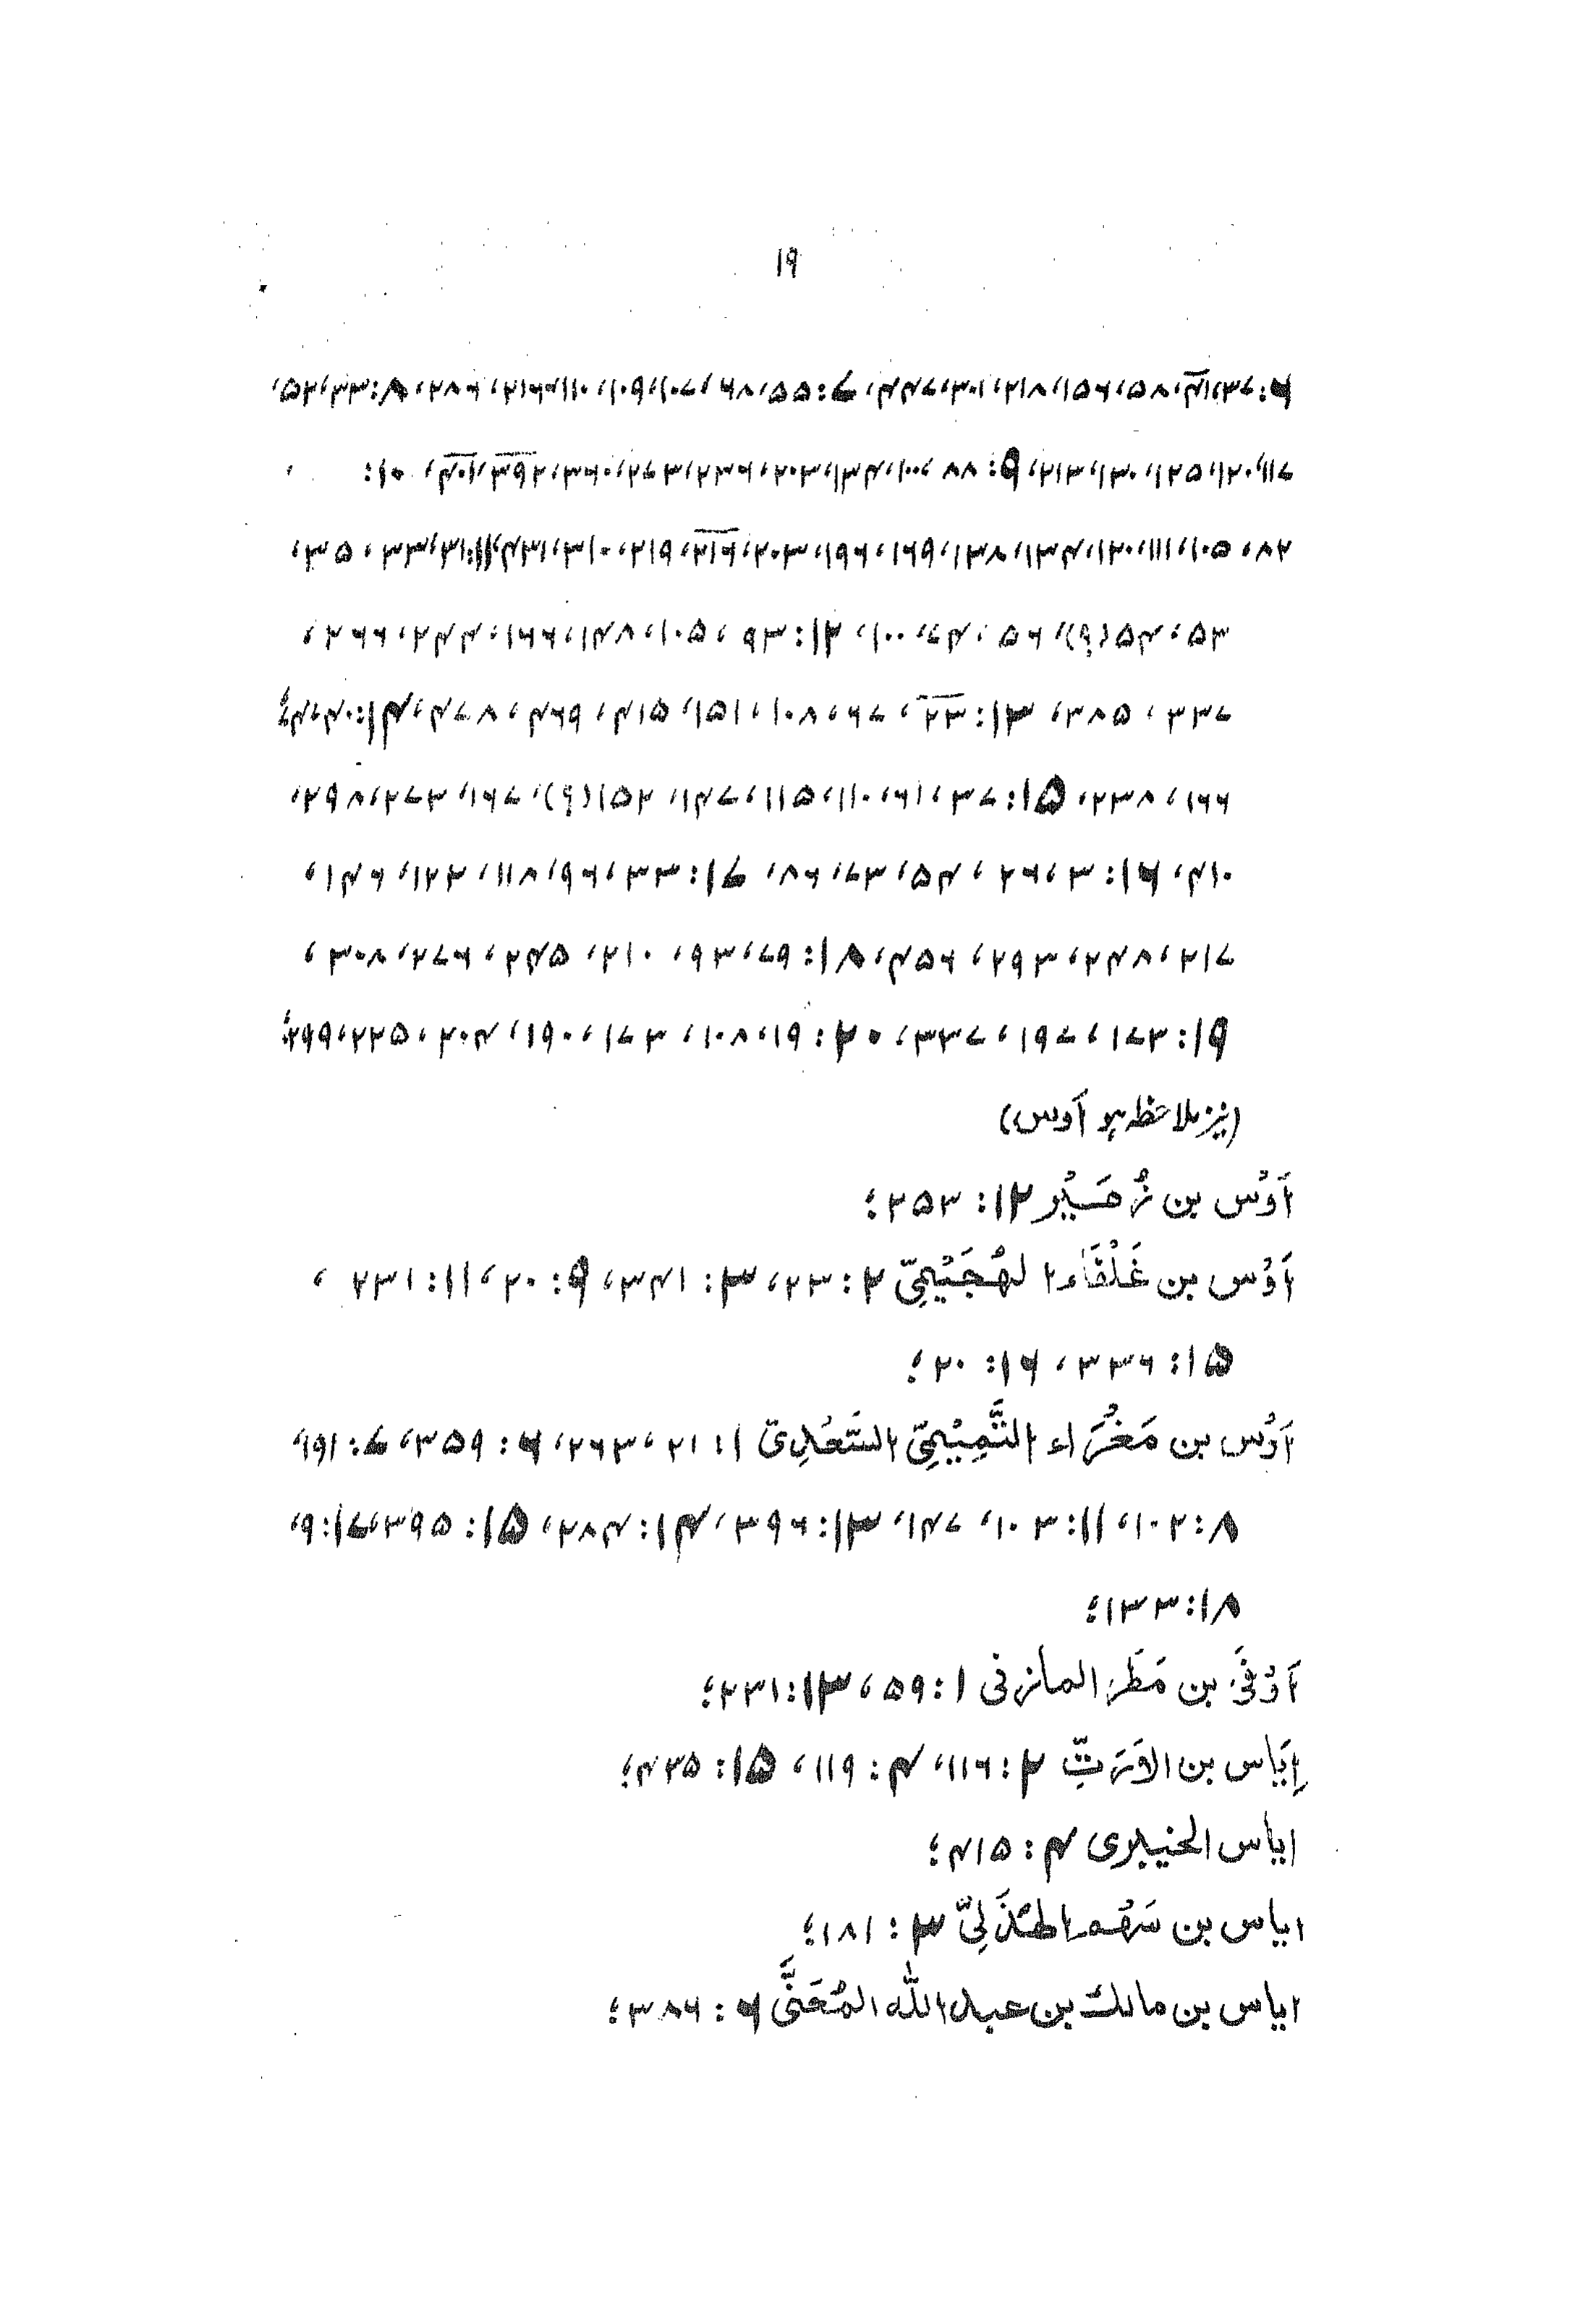 ۱۹
۶: ۳۷، ۴۱، ۵۸، ۱۵۶، ۲۱۸، ۳۰۱، ۴۴۷، ۷: ۵۵، ۶۸، ۱۰۷، ۱۰۹، ۱۱۰، ۲۱۶، ۲۸۶، ۸: ۳۳، ۵۲،
۱۱۷، ۱۲۰، ۱۲۵، ۱۳۰، ۲۱۳، ۹: ۸۷، ۱۰۰، ۱۳۴، ۲۰۳، ۲۳۶، ۲۷۳، ۳۶۰، ۳۹۲، ۴۰۱، ۱۰:
۸۲، ۱۰۵، ۱۱۱، ۱۲۰، ۱۳۴، ۱۳۸، ۱۶۹، ۱۹۶، ۲۰۳، ۲۱۶، ۲۱۹، ۳۱۰، ۴۳۱، ۱۱: ۳۱، ۳۳، ۳۵،
۵۳، ۵۴(؟)، ۵۶، ۷۴، ۱۰۰، ۱۲: ۹۳، ۱۰۵، ۱۴۸، ۱۶۶، ۲۴۴، ۲۶۶،
۳۳۷، ۳۸۵، ۱۳: ۲۳، ۶۷، ۱۰۸، ۱۵۱، ۴۱۵، ۴۶۹، ۴۷۸، ۱۴: ۴۰، ۷۴،
۱۶۶، ۲۳۸، ۱۵: ۳۷، ۶۱، ۱۱۰، ۱۱۵، ۱۴۷، ۱۵۲(؟)، ۱۶۷، ۲۷۳، ۲۹۸،
۴۱۰، ۱۶: ۳، ۲۶، ۵۴، ۷۳، ۸۶، ۱۷: ۳۳، ۹۶، ۱۱۸، ۱۲۳، ۱۴۶،
۲۱۷، ۲۴۸، ۲۹۳، ۴۵۶، ۱۸: ۷۹، ۹۳، ۲۱۰، ۲۴۵، ۲۷۶، ۳۰۸،
۱۹: ۱۷۳، ۱۹۷، ۳۳۷، ۲۰: ۱۹، ۱۰۸، ۱۷۳، ۱۹۰، ۲۰۴، ۲۲۵، ۲۹۹؛
(نیز ملاحظہ ہو أوس)
أَوْس بن زُهَيْر ۱۲: ۲۵۳؛
أَوْس بن غَلْفَاء الهُجَيْمِيّ ۲: ۲۳، ۳: ۳۴۱، ۹: ۲۰، ۱۱: ۲۳۱،
۱۵: ۳۳۶، ۱۶: ۲۰؛
أَوْس بن مَغْرَاء التَّمِيْمِيّ السَّعْدِيّ ۱: ۲۱، ۲۶۳، ۶: ۳۵۹، ۷: ۱۹۱،
۸: ۱۰۲، ۱۱: ۱۰۳، ۱۴۷، ۱۳: ۳۹۶، ۱۴: ۲۸۴، ۱۵: ۳۹۵، ۱۷: ۹،
۱۸: ۱۳۳؛
أَوْفَى بن مَطَر المازنی ۱: ۵۹، ۱۳: ۲۳۱؛
إِيَاس بن الأَرَتِّ ۲: ۱۱۶، ۴: ۱۱۹، ۱۵: ۴۳۵؛
اياس الخيبری ۴: ۴۱۵؛
اياس بن سَهْم الهُذَلِيّ ۳: ۱۸۱؛
اياس بن مالك بن عبد الله المُعَنَّى ۶: ۳۸۶؛